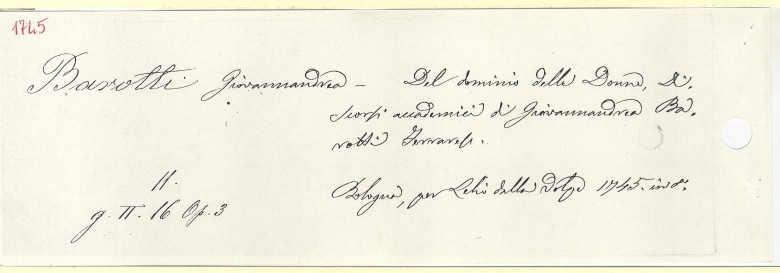 1745
Barotti Giovannandrea - Del dominio delle Donne, Di-
scorsi accademici di Giovannandrea Ba-
rotti Ferrarese.
11.
Bologna, per Lelio dalla Volpe 1745. in 8.
g. II. 16 Op. 3